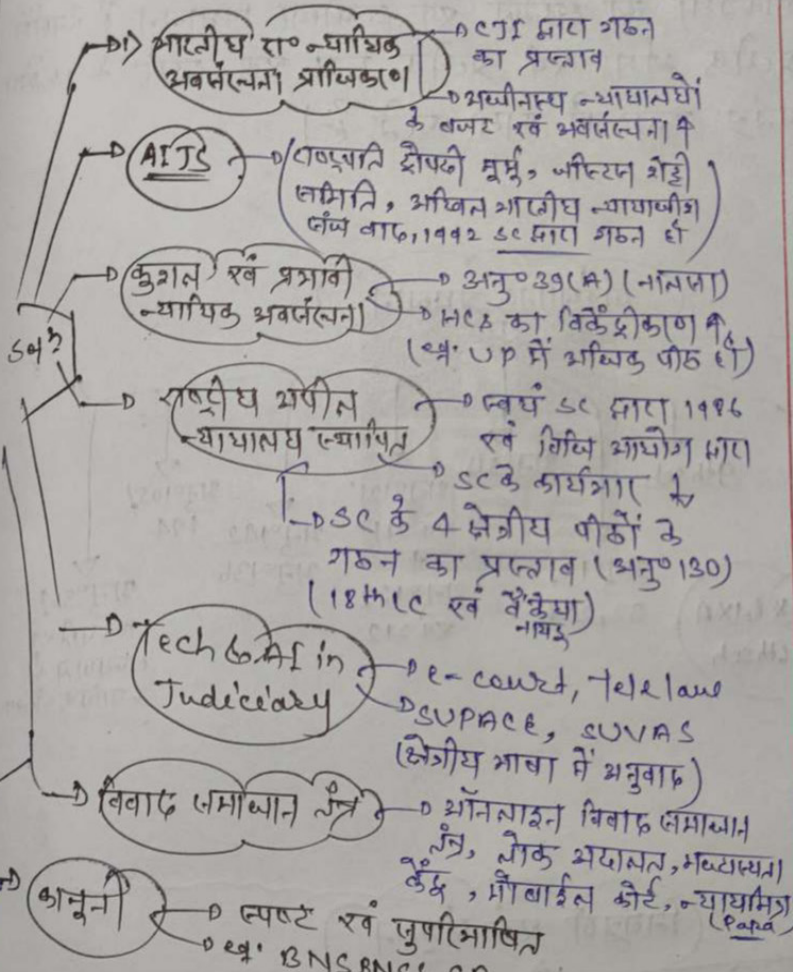 1) भारतीय रा० न्यायिक
अवसंरचना प्राधिकरण
CJI द्वारा गठन
का प्रस्ताव
अधीनस्थ न्यायालयों
के बजट एवं अवसंरचना ↑
AIJS
राष्ट्रपति द्रौपदी मुर्मू, जस्टिस शेट्टी
समिति, अखिल भारतीय न्यायाधीश
संघ वाद, 1992 SC द्वारा गठन हो
कुशल एवं प्रभावी
न्यायिक अवसंरचना
अनु० 39(A) (नालसा)
HCs का विकेंद्रीकरण
(eg: UP में अधिक पीठ हो)
राष्ट्रीय अपील
न्यायालय स्थापित
स्वयं SC द्वारा 1986
एवं विधि आयोग द्वारा
SC के कार्यभार ↓
SC के 4 क्षेत्रीय पीठों के
गठन का प्रस्ताव (अनु० 130)
(18th LC एवं वैंकेया
नायडू)
Tech & AI in
Judiciary
e-court, Telelaw
SUPACE, SUVAS
(क्षेत्रीय भाषा में अनुवाद)
विवाद समाधान तंत्र
ऑनलाइन विवाद समाधान
तंत्र, लोक अदालत, मध्यस्थता
केंद्र, मोबाईल कोर्ट, न्यायमित्र
कानूनी
स्पष्ट एवं सुपरिभाषित
eg: BNS